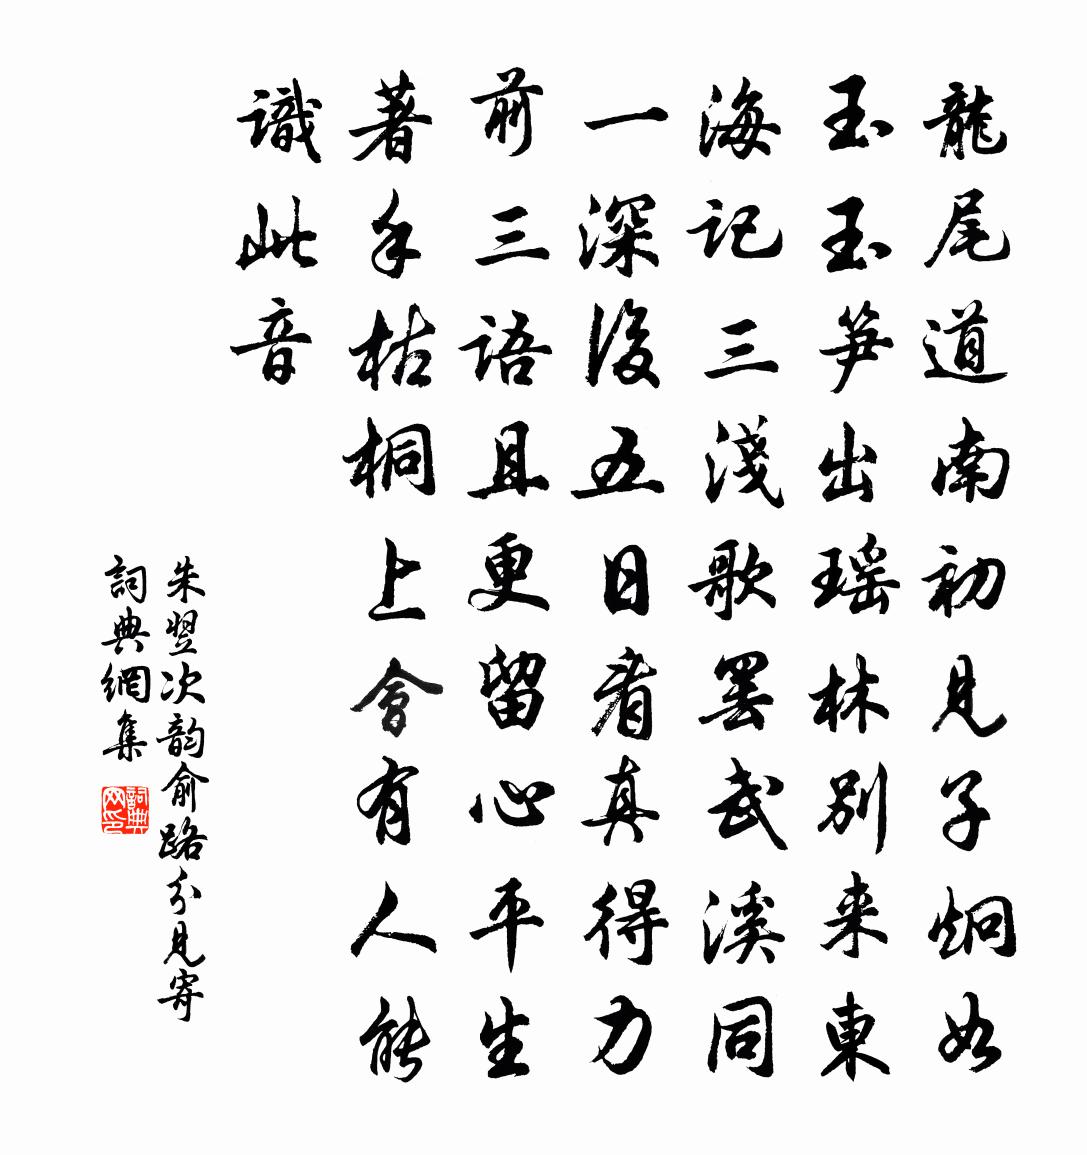 龍尾道南初見子炯如
玉玉笋出瑶林別来東
海記三淺歌罢武溪同
一深後五日看真得力
前三語且更留心平生
著手枯桐上會有人能
識此音
朱翌次韵俞路分見寄
詞典網集
詞典网印